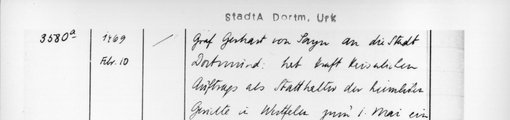 StadtA Dortm. Urk
3580a 1469 / Graf Gerhart von Sayn an die Stadt
Febr. 10 Dortmund: hat kraft kaiserlichen
Auftrags als Statthalter der heimlichen
Gerichte in Westfalen zum 1. Mai ein